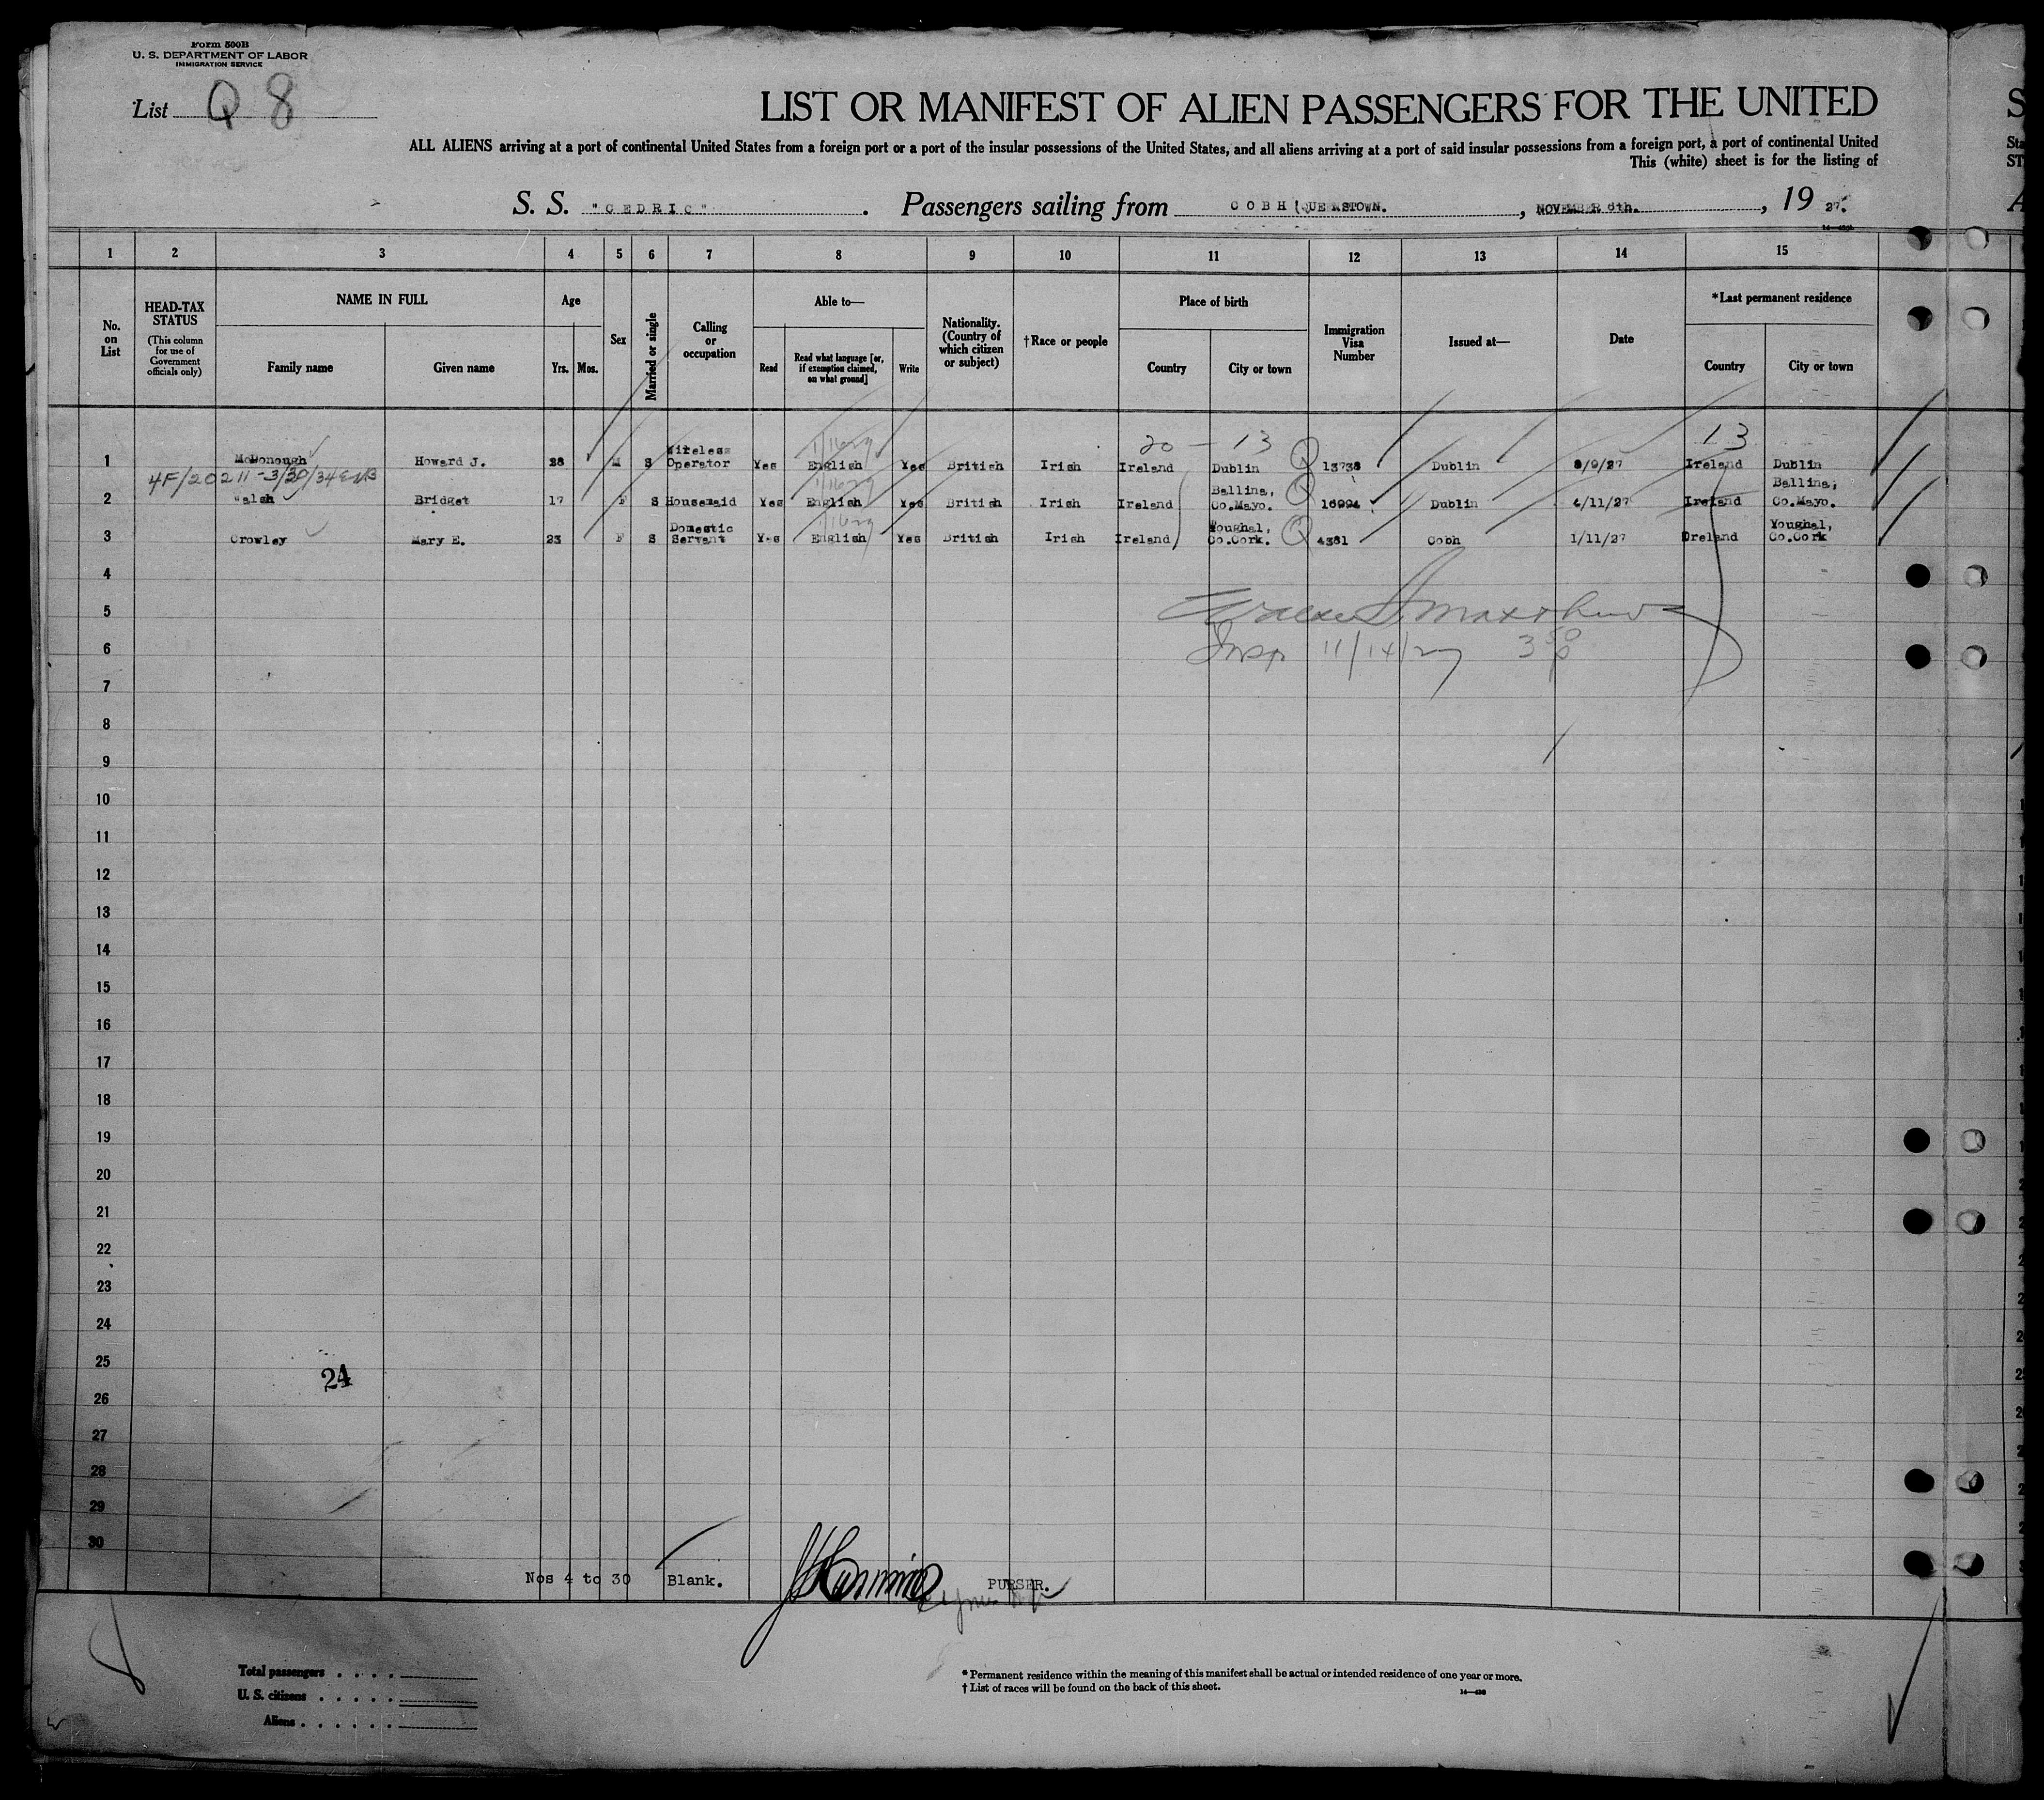 Form 500B
U. S. DEPARTMENT OF LABOR
IMMIGRATION SERVICE
List Q 8
LIST OR MANIFEST OF ALIEN PASSENGERS FOR THE UNITED
ALL ALIENS arriving at a port of continental United States from a foreign port or a port of the insular possessions of the United States, and all aliens arriving at a port of said insular possessions from a foreign port, a port of continental United
This (white) sheet is for the listing of
S. S. "CEDRIC". Passengers sailing from COBH (QUEENSTOWN., NOVEMBER 6th., 19 27.
1 2 3 4 5 6 7 8 9 10 11 12 13 14 15
No. on List
HEAD-TAX STATUS
(This column for use of Government officials only)
NAME IN FULL
Family name Given name
Age
Yrs. Mos.
Sex
Married or single
Calling or occupation
Able to—
Read
Read what language [or, if exemption claimed, on what ground]
Write
Nationality. (Country of which citizen or subject)
†Race or people
Place of birth
Country City or town
Immigration Visa Number
Issued at—
Date
*Last permanent residence
Country City or town
20 — 13 13
1 McDonough Howard J. 28 M S Wireless Operator Yes English Yes British Irish Ireland Dublin Q 13738 Dublin Ireland Dublin
2 Walsh Bridget 17 F S Housemaid Yes English Yes British Irish Ireland Ballina, Co.Mayo. Q 16994 Dublin 4/11/27 Ireland Ballina, Co.Mayo.
3 Crowley Mary E. 23 F S Domestic Servant Yes English Yes British Irish Ireland Youghal, Co.Cork. Q 4381 Cobh 1/11/27 Dreland Youghal, Co.Cork
4
5
6 Insp 11/14/27 3 50 p
7
8
9
10
11
12
13
14
15
16
17
18
19
20
21
22
23
24
25
24
26
27
28
29
30
Nos 4 to 30 Blank. PURSER.
Total passengers
U. S. citizens
Aliens
* Permanent residence within the meaning of this manifest shall be actual or intended residence of one year or more.
† List of races will be found on the back of this sheet.